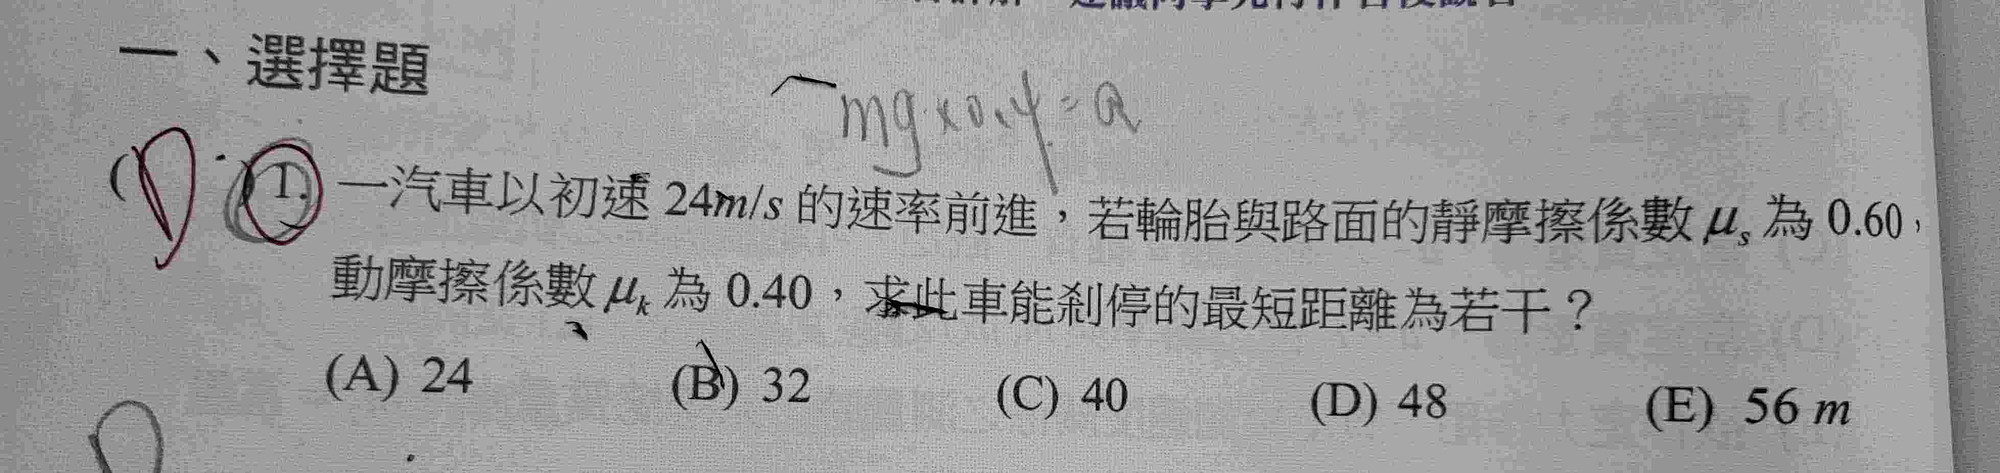 一、選擇題
mg×0.4=a
(D) 1. 一汽車以初速 24m/s 的速率前進，若輪胎與路面的靜摩擦係數 μs 為 0.60，
動摩擦係數 μk 為 0.40，求此車能剎停的最短距離為若干？
(A) 24 (B) 32 (C) 40 (D) 48 (E) 56 m